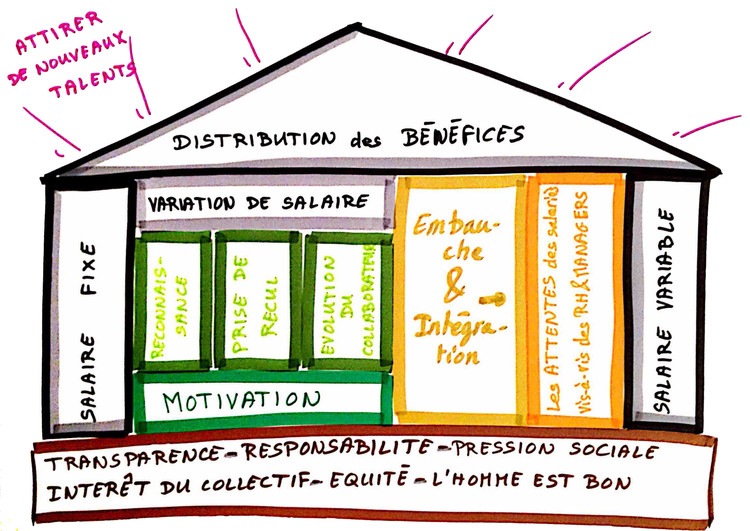 ATTIRER
DE NOUVEAUX
TALENTS
DISTRIBUTION des BÉNÉFICES
SALAIRE FIXE
VARIATION DE SALAIRE
RECONNAIS-
SANCE
PRISE DE
RECUL
EVOLUTION
DU
COLLABORATEUR
MOTIVATION
Embau-
che
&
Intégra-
tion
Les ATTENTES des salariés
vis-à-vis des RH & MANAGERS
SALAIRE VARIABLE
TRANSPARENCE - RESPONSABILITE - PRESSION SOCIALE
INTERÊT DU COLLECTIF - EQUITÉ - L'HOMME EST BON